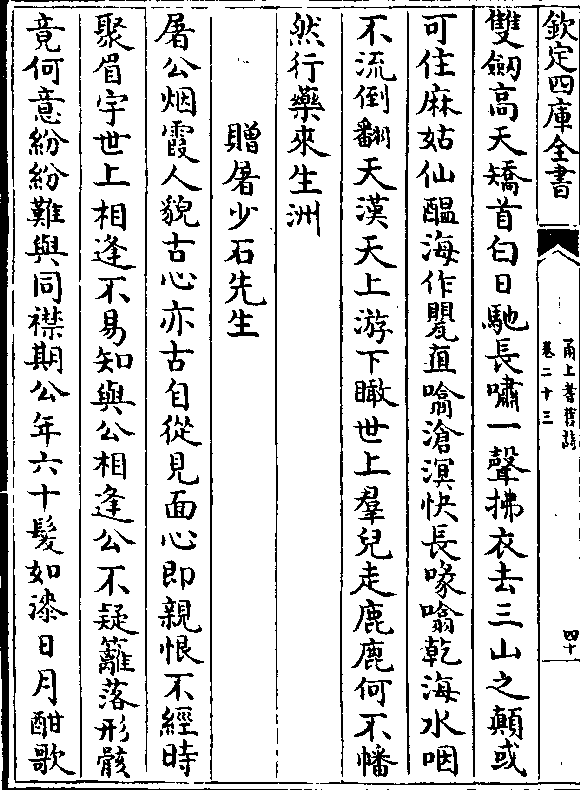 欽定四庫全書
甬上耆舊詩
卷二十三
四十
雙劒高天矯首白日馳長嘯一聲拂衣去三山之顛或
可住麻姑仙醖海作甖直噏滄溟快長喙噏乾海水咽
不流倒翻天漢天上游下瞰世上羣兒走鹿鹿何不幡
然行藥來生洲
贈屠少石先生
屠公烟霞人貌古心亦古自從見面心即親恨不經時
聚眉宇世上相逢不易知與公相逢公不疑籬落形骸
竟何意紛紛難與同襟期公年六十髮如漆日月酣歌